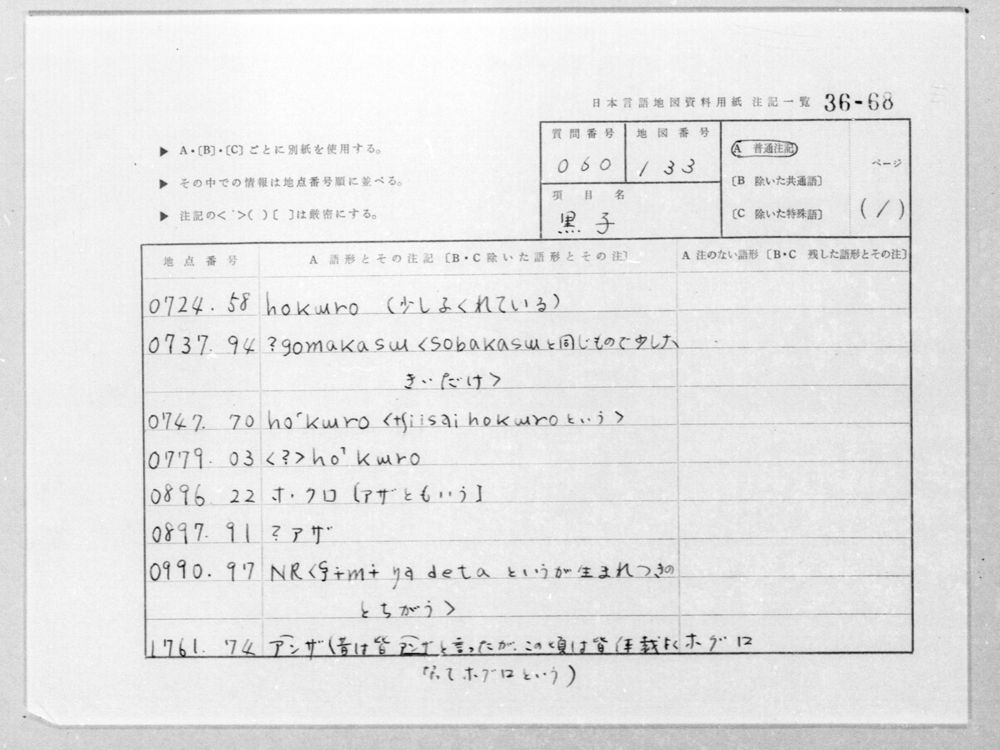 日本言語地図資料用紙 注記一覧 36-68
▶ A・〔B〕・〔C〕ごとに別紙を使用する。
▶ その中での情報は地点番号順に並べる。
▶ 注記の< >( )〔 〕は厳密にする。
質問番号 地図番号
060 133
項目名
黒子
A 普通注記
〔B 除いた共通語〕
〔C 除いた特殊語〕
ページ
(1)
地点番号 A 語形とその注記〔B・C除いた語形とその注〕 A 注のない語形〔B・C 残した語形とその注〕
0724.58 hokɯro (少しふくれている)
0737.94 ?gomakasɯ <sobakasɯと同じもので少し大
きいだけ>
0747.70 hoˊkɯro <tʃiisai hokɯroという>
0779.03 <?>ho'kɯro
0896.22 ホ・クロ〔アザともいう〕
0897.91 ?アザ
0990.97 NR< deta というが生まれつきの
とちがう>
1761.74 アンザ(昔は皆アンザと言ったが、この頃は皆 ホグロ
なってホグロという)